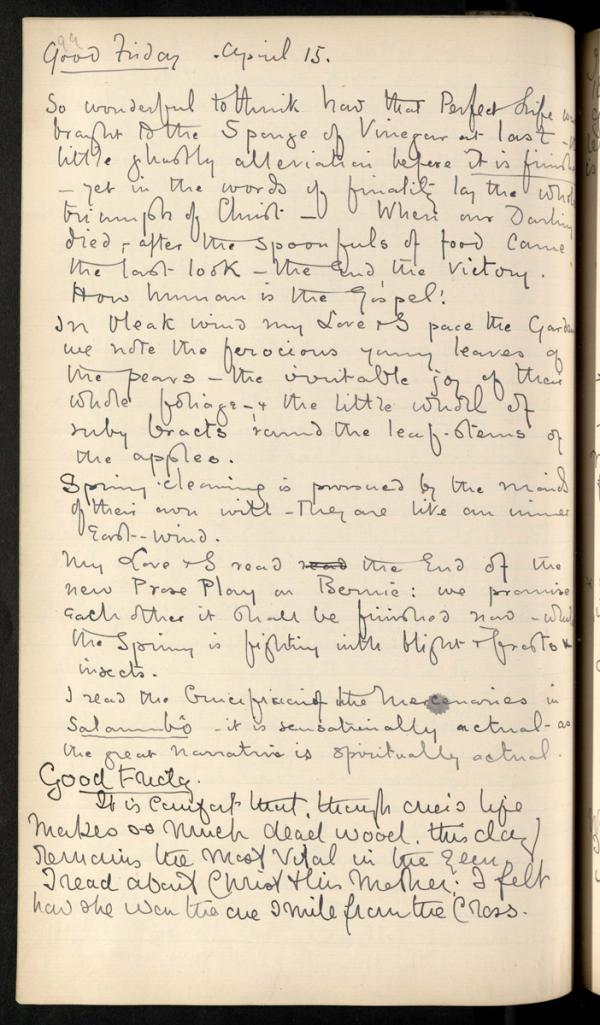 99
Good Friday April 15.
So wonderful to think how that Perfect Life was
brought to the Sponge of Vinegar at last –
little ghastly alleviation before it is finished
– yet in the words of finality lay the whole
triumph of Christ – When our Darling
died, after the spoonfuls of food came
the last look – the End, the Victory.
How human is the Gospel!
In bleak wind my Love & I pace the Garden
we note the ferocious young leaves of
the pears – the irritable joy of their
whole foliage – & the little whorl of
ruby bracts round the leaf-stems of
the apples.
Spring cleaning is pursued by the maids
of their own will – They are like an inner
East-wind.
My Love & I read read the End of the
new Prose Play on Bernie: we promise
each other it shall be finished now – while
the Spring is fighting with blight & frosts &
insects.
I read the Crucifixion of the Mercenaries in
Salammbô – it is sensationally actual – as
the great narrative is spiritually actual.
Good Friday.
It is comfort that, though one's life
makes so much dead wood, this day
remains the most vital in the
I read about Christ & His Mother. I felt
how she was the one smile from the Cross.